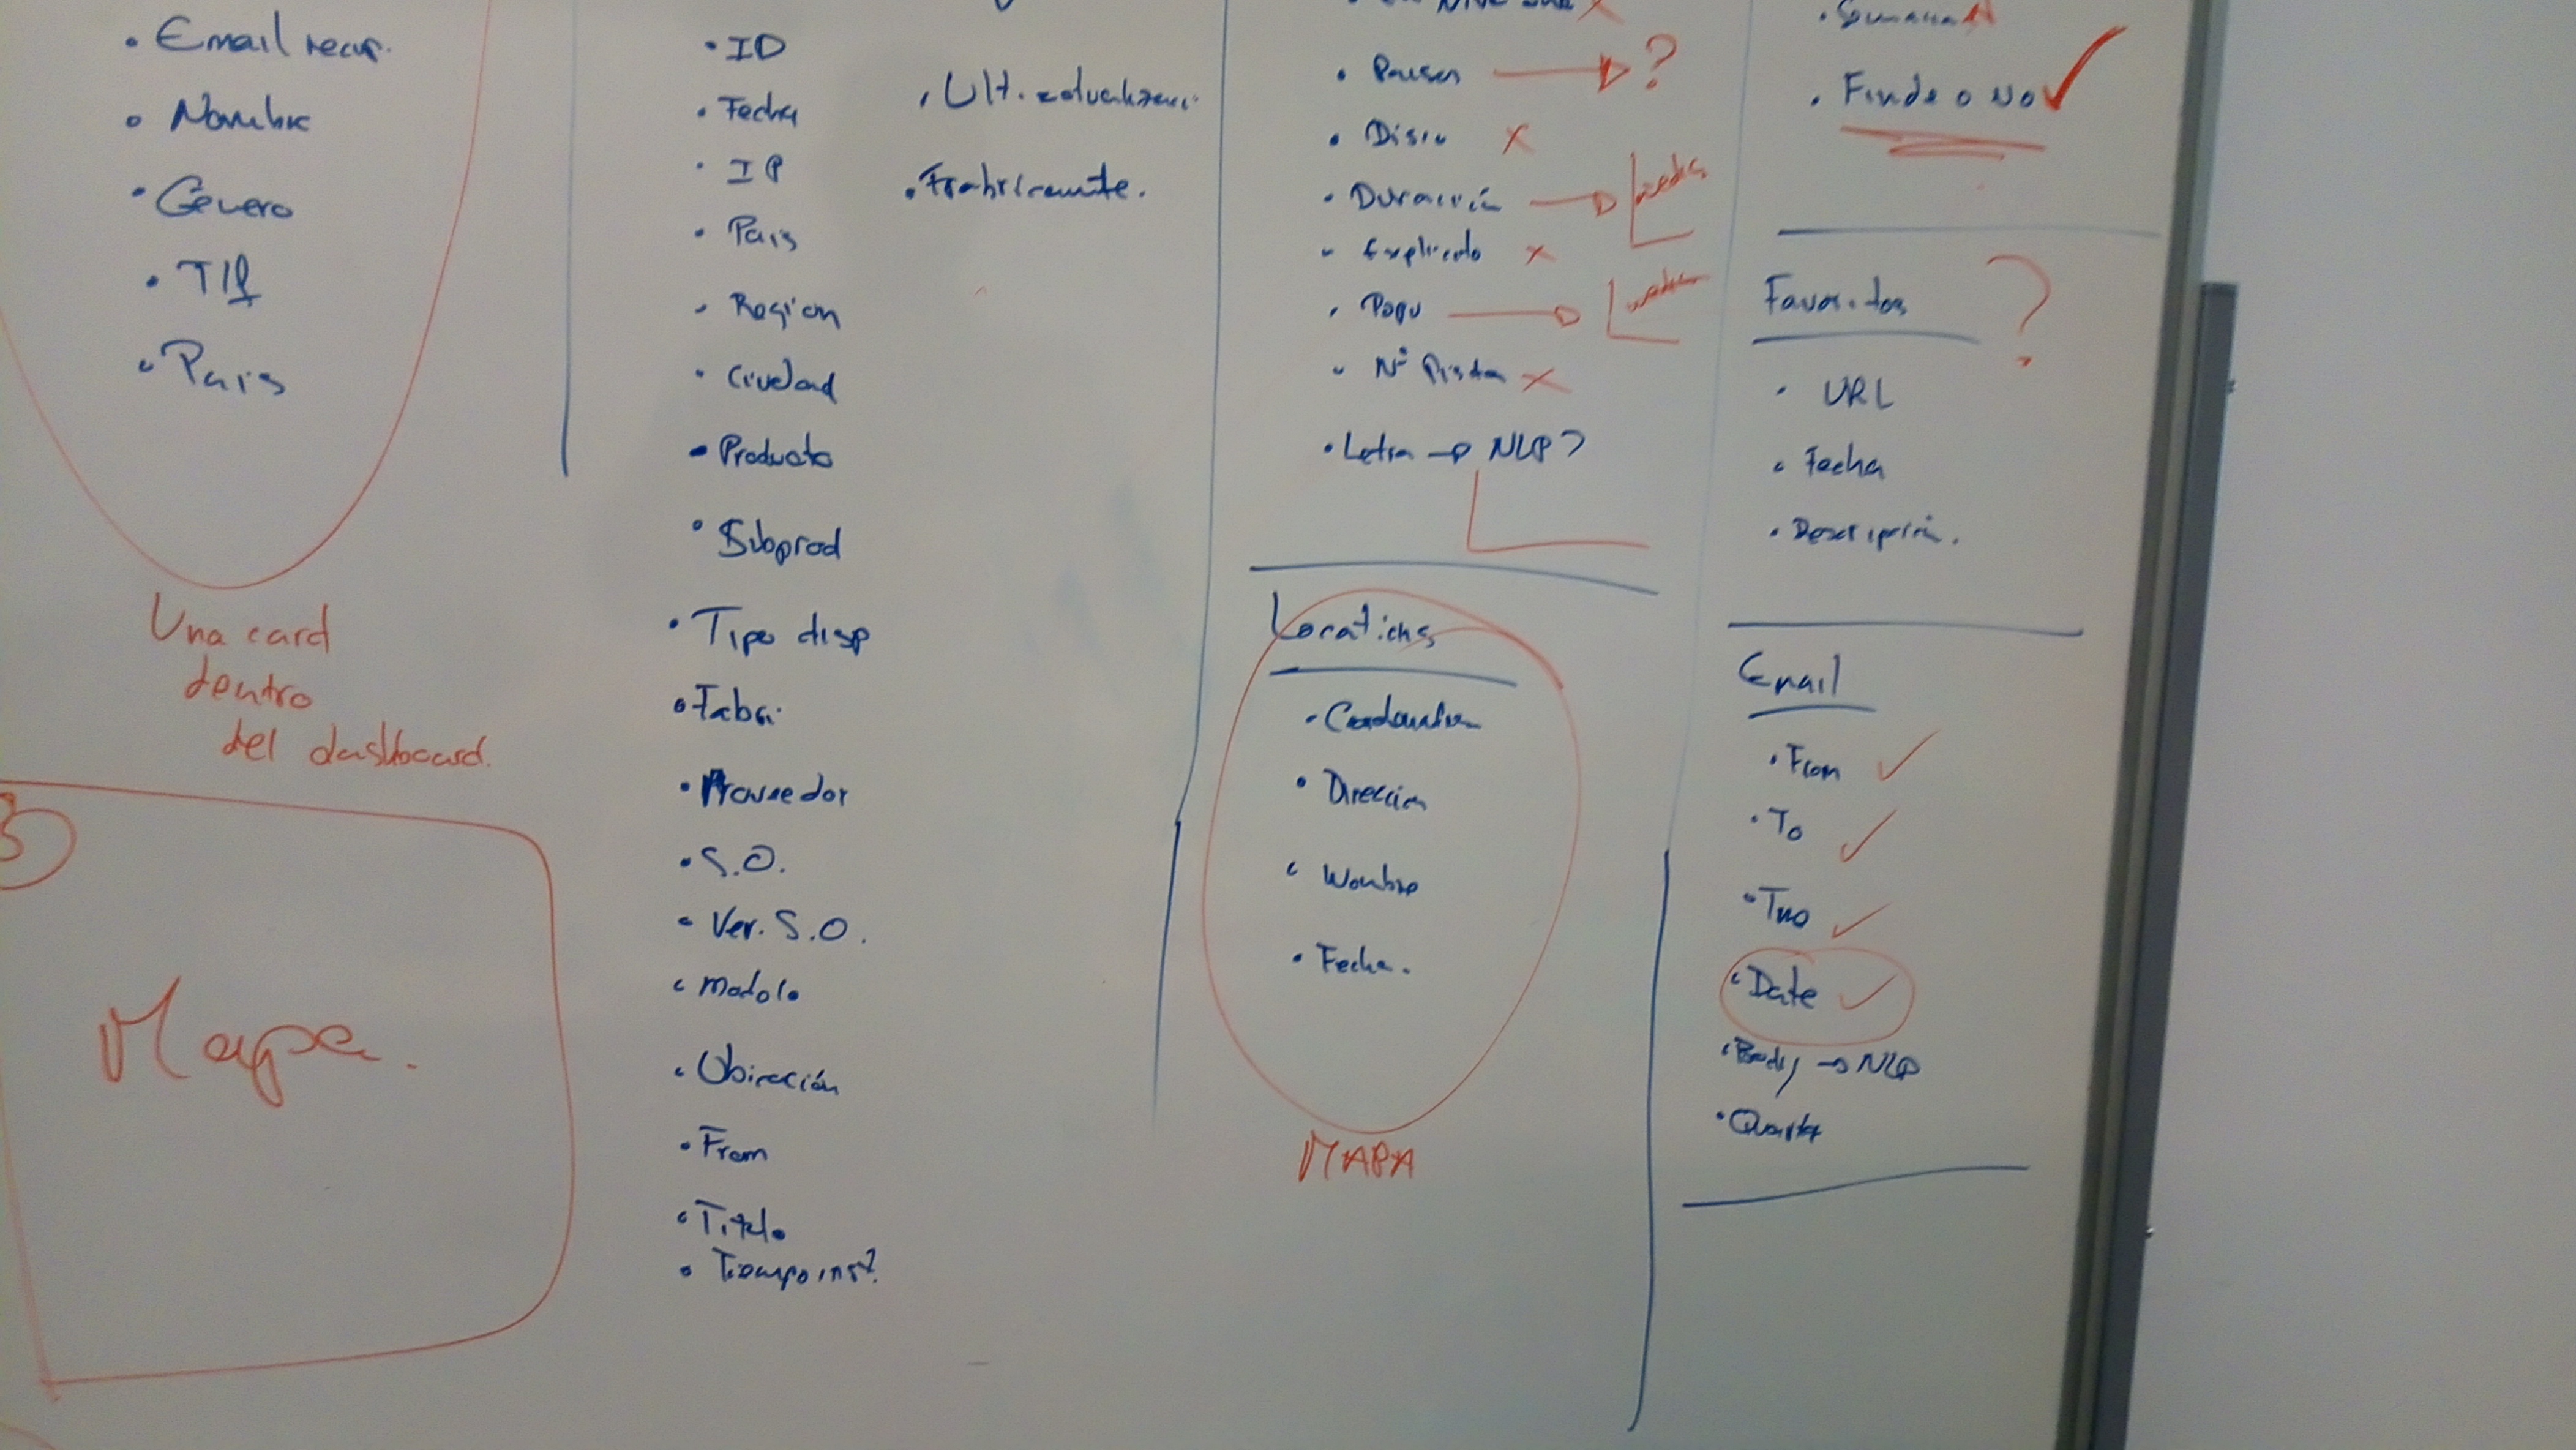 • Email recup.
• Nombre
• Género
• Tlf
• Pais
Una card
dentro
del dashboard.
Mapa.
• ID
• Fecha
• IP
• Pais
• Region
• Ciudad
• Producto
• Subprod
• Tipo disp
• Fabri.
• Proveedor
• S.O.
• Ver. S.O.
• Modelo
• Ubicación
• From
• Titulo
• Tiempo inst?
• Fabricante.
• Paises → ?
• Disco X
• Duración → media
• Explicito X
• Popu → media
• Nº Pista X
• Letra → NLP?
Locations
• Direccion
• Nombre
• Fecha.
MAPA
• Semana
• Finde o No ✓
Favoritos ?
• URL
• Fecha
• Descripción.
Email
• From ✓
• To ✓
• Date ✓
• Body → NLP